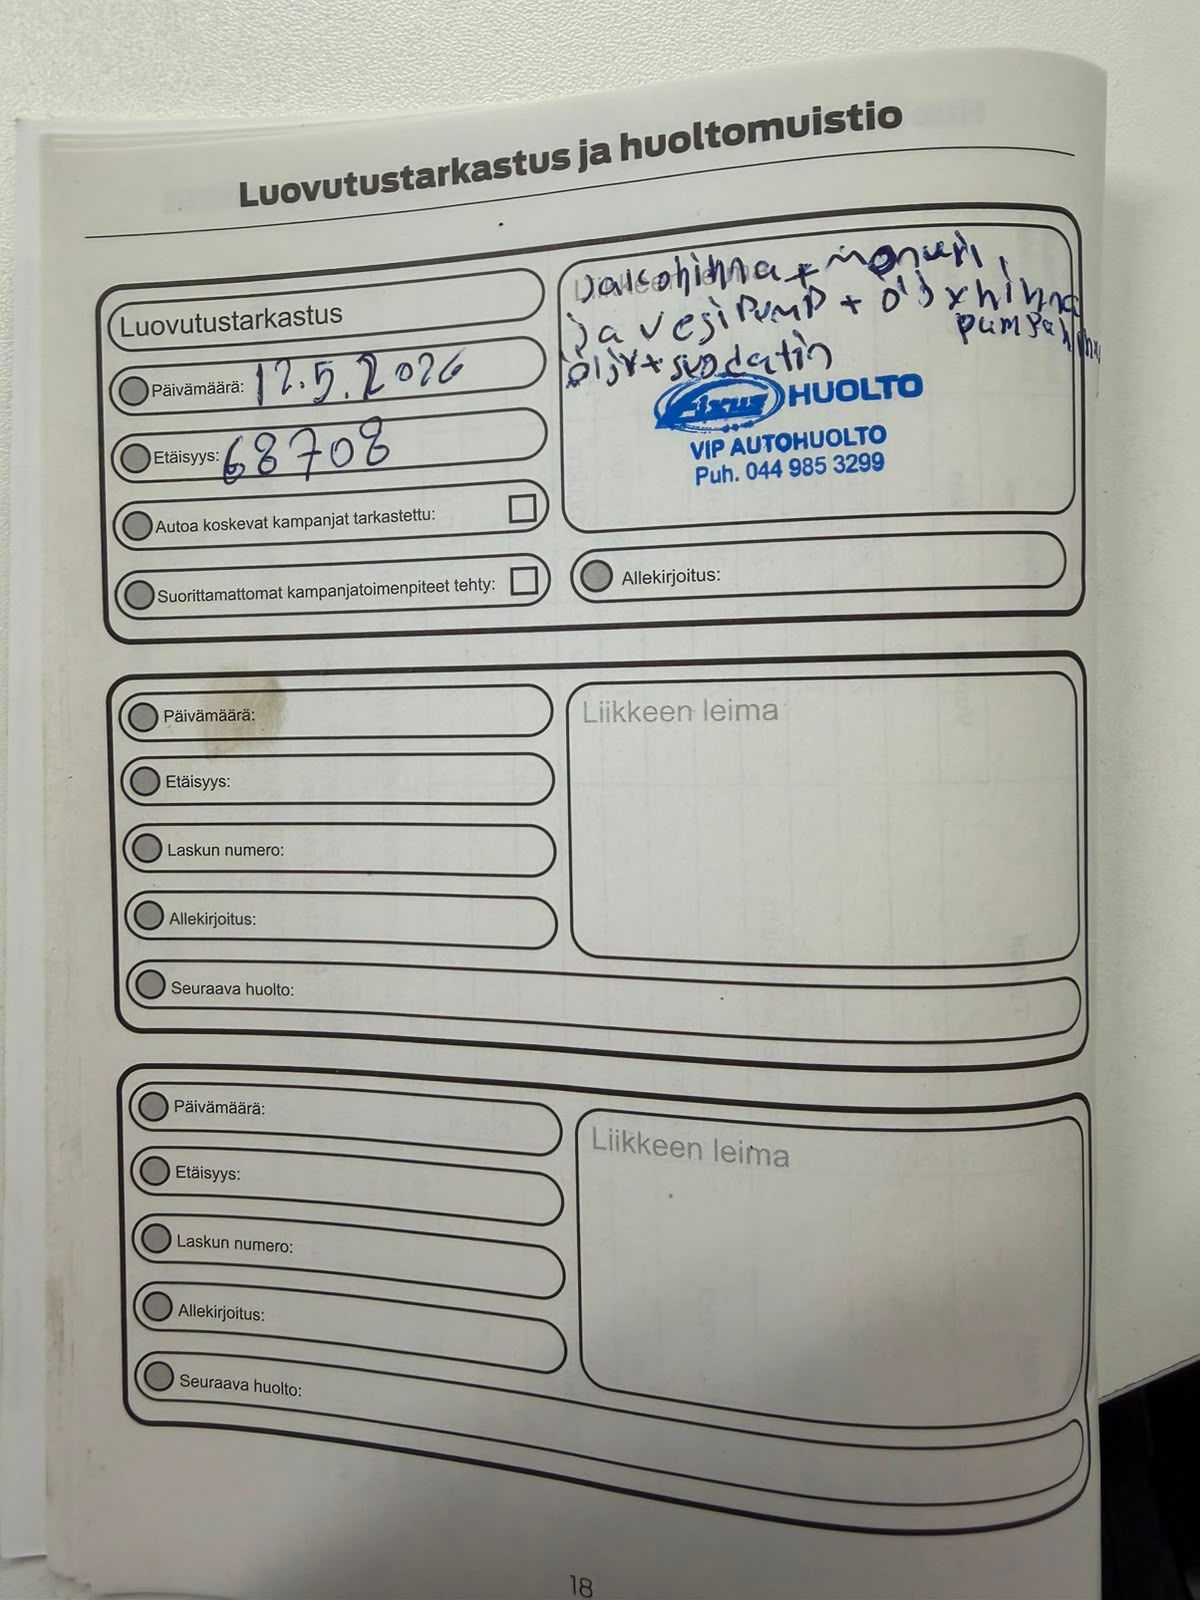 Luovutustarkastus ja huoltomuistio
Luovutustarkastus
Päivämäärä: 12.5.2026
Etäisyys: 68708
Autoa koskevat kampanjat tarkastettu:
Suorittamattomat kampanjatoimenpiteet tehty:
Jakohihna +
Ja vesi pump + öljyhihna
öljy + suodatin
fixus HUOLTO
VIP AUTOHUOLTO
Puh. 044 985 3299
Allekirjoitus:
Päivämäärä:
Etäisyys:
Laskun numero:
Allekirjoitus:
Seuraava huolto:
Liikkeen leima
Päivämäärä:
Etäisyys:
Laskun numero:
Allekirjoitus:
Seuraava huolto:
Liikkeen leima
18